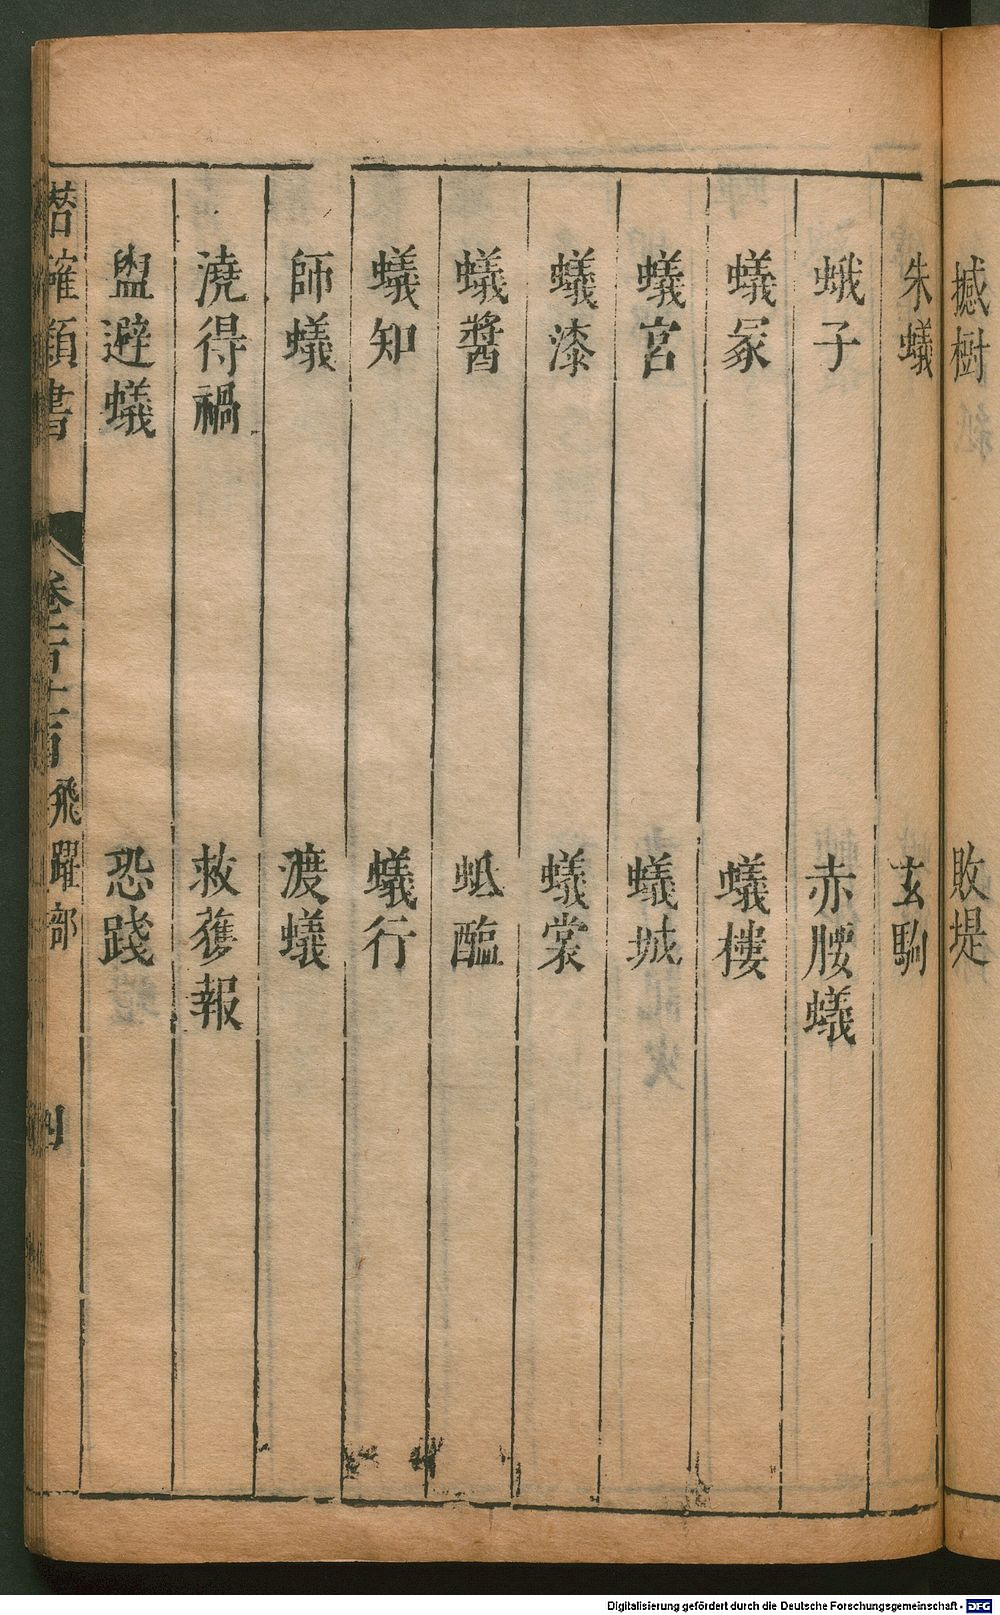 撼樹 敗堤
朱蟻 玄駒
蛾子 赤腰蟻
蟻冢 蟻樓
蟻宮 蟻城
蟻漆 蟻裳
蟻醬 蚳醢
蟻知 蟻行
師蟻 渡蟻
澆得禍 救獲報
盥避蟻 恐踐
類書
飛躍部
四
Digitalisierung gefördert durch die Deutsche Forschungsgemeinschaft - DFG